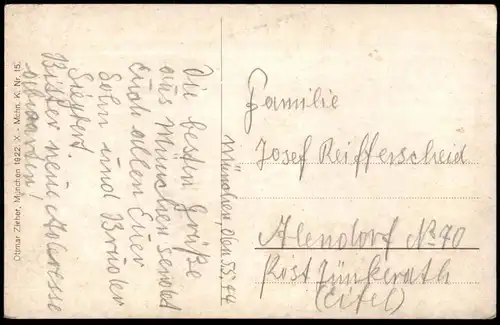 München, den 5.5.44
Die besten Grüße
aus München sendet
euch allen Euer
Sohn und Bruder
Siegbert.
Bitte neue Adresse
abwarten!
Familie
Josef Reifferscheid
Alendorf No 70
Post Jünkerath
(Eifel)
Ottmar Zieher, München 1922. X. - Mchn. K. Nr. 15.